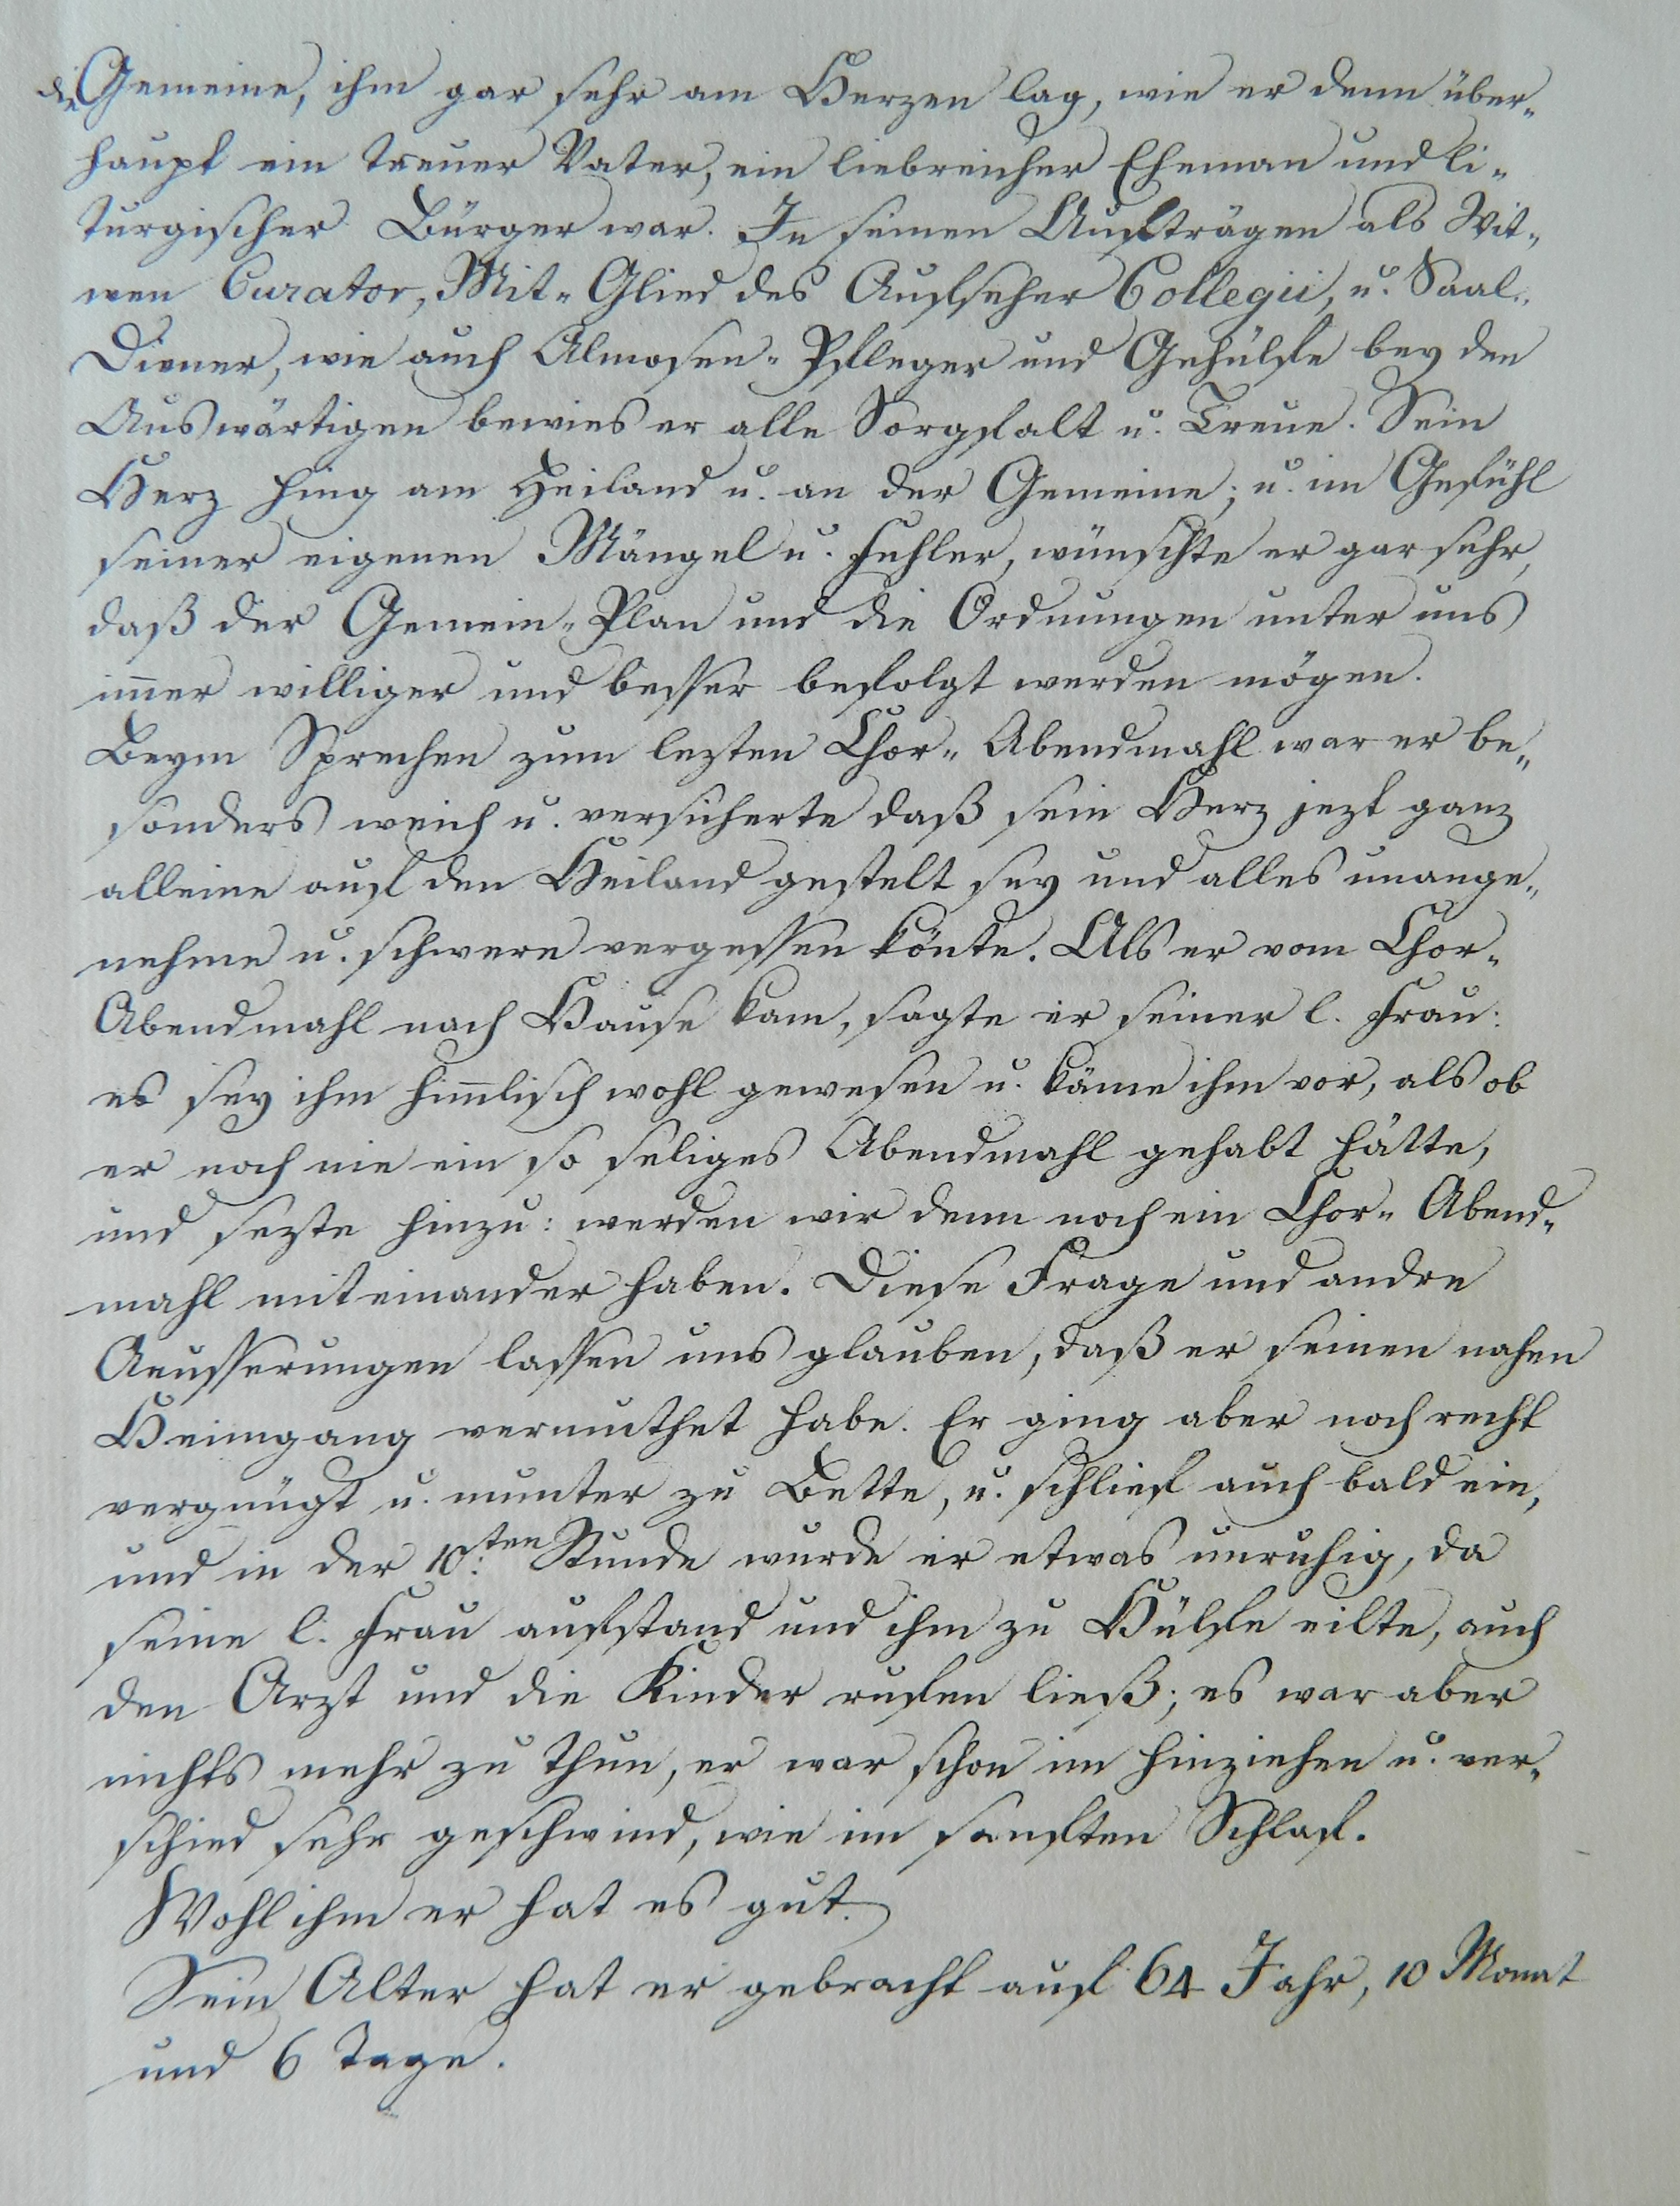 die Gemeine, ihm gar sehr am Herzen lag, wie er denn über-
haupt ein treuer Vater, ein liebreicher Eheman und li-
turgischer Bürger war. In seinen Aufträgen als Wit-
wen Curator, Mit-Glied des Aufseher Collegii, u. Saal-
Diener, wie auch Almosen-Pfleger und Gehülfe bey den
Auswärtigen bewies er alle Sorgfalt u. Treue. Sein
Herz hing am Heiland u. an der Gemeine; u. im Gefühl
seiner eigenen Mängel u. Fehler, wünschte er gar sehr,
daß der Gemein-Plan und die Ordnungen unter uns
im̅er williger und besser befolgt werden mögen.
Beym Sprechen zum lezten Chor-Abendmahl war er be-
sonders weich u. versicherte daß sein Herz jezt ganz
alleine auf den Heiland gestelt sey und alles unange-
nehme u. schwere vergessen könte. Als er vom Chor-
Abendmahl nach Hause kam, sagte er seiner l. Frau:
es sey ihm him̅lisch wohl gewesen u. käme ihm vor, als ob
er noch nie ein so seliges Abendmahl gehabt hätte,
und sezte hinzu: werden wir denn noch ein Chor-Abend-
mahl miteinander haben. Diese Frage und andre
Aeusserungen lassen uns glauben, daß er seinen nahen
Heimgang vermuthet habe. Er ging aber noch recht
vergnügt u. munter zu Bette, u. schlief auch bald ein,
und in der 10.ten Stunde wurde er etwas unruhig, da
seine l. Frau aufstand und ihm zu Hülfe eilte, auch
den Arzt und die Kinder rufen ließ; es war aber
nichts mehr zu thun, er war schon im Hinziehen u. ver-
schied sehr geschwind, wie im sanften Schlaf.
Wohl ihm er hat es gut.
Sein Alter hat er gebracht auf 64 Jahr, 10 Monat
und 6 Tage.